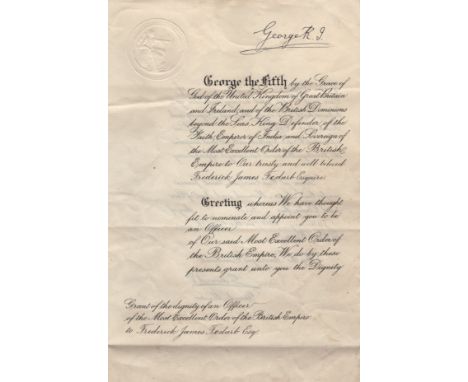 George R I
George the Fifth by the Grace of
God of the United Kingdom of Great Britain
and Ireland and of the British Dominions
beyond the Seas King Defender of the
Faith Emperor of India and Sovereign of
the Most Excellent Order of the British
Empire to Our trusty and well beloved
Frederick James Esquire
Greeting whereas We have thought
fit to nominate and appoint you to be
an Officer
of Our said Most Excellent Order of
the British Empire, We do by these
presents grant unto you the Dignity
Grant of the dignity of an Officer
of the Most Excellent Order of the British Empire
to Frederick James Esq